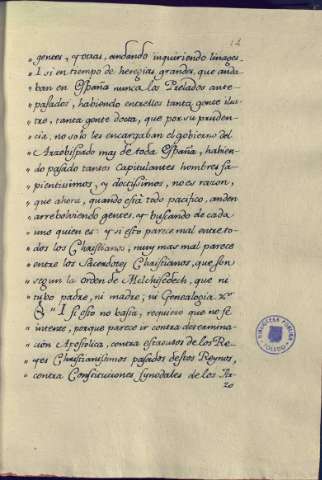 12
" gentes, y otras, andando inquiriendo linages.
" I si en tiempo de heregias grandes, que anda
" ban en España nunca los Prelados ante
" pasados, habiendo entrellos tanta gente ilus
" tre, tanta gente docta, que por su pruden
" cia, no solo les encargaban el gobierno del
" Arzobispado mas de toda España, habien
" do pasado tantos Capitulantes hombres sa
" pientisimos, y doctissimos, no es razon,
" que ahora, quando està todo pacifico, anden
" arrebolviendo gentes, y buscando de cada
" uno quien es: y si esto parece mal entre to
" dos los Christianos, muy mas mal parece
" entre los Sacerdotes Christianos, que son
" segun la orden de Melchisedech, que ni
" tubo padre, ni madre, ni Genealogia &c.
" I si esto no basta, requiero que no se
" intente, porque parece ir contra determina
" cion Apostolica, contra estatutos de los Re
" yes Christianisimos pasados destos Reynos,
" contra Constituciones synodales de los Ar
zo
BIBLIOTECA PUBLICA
TOLEDO